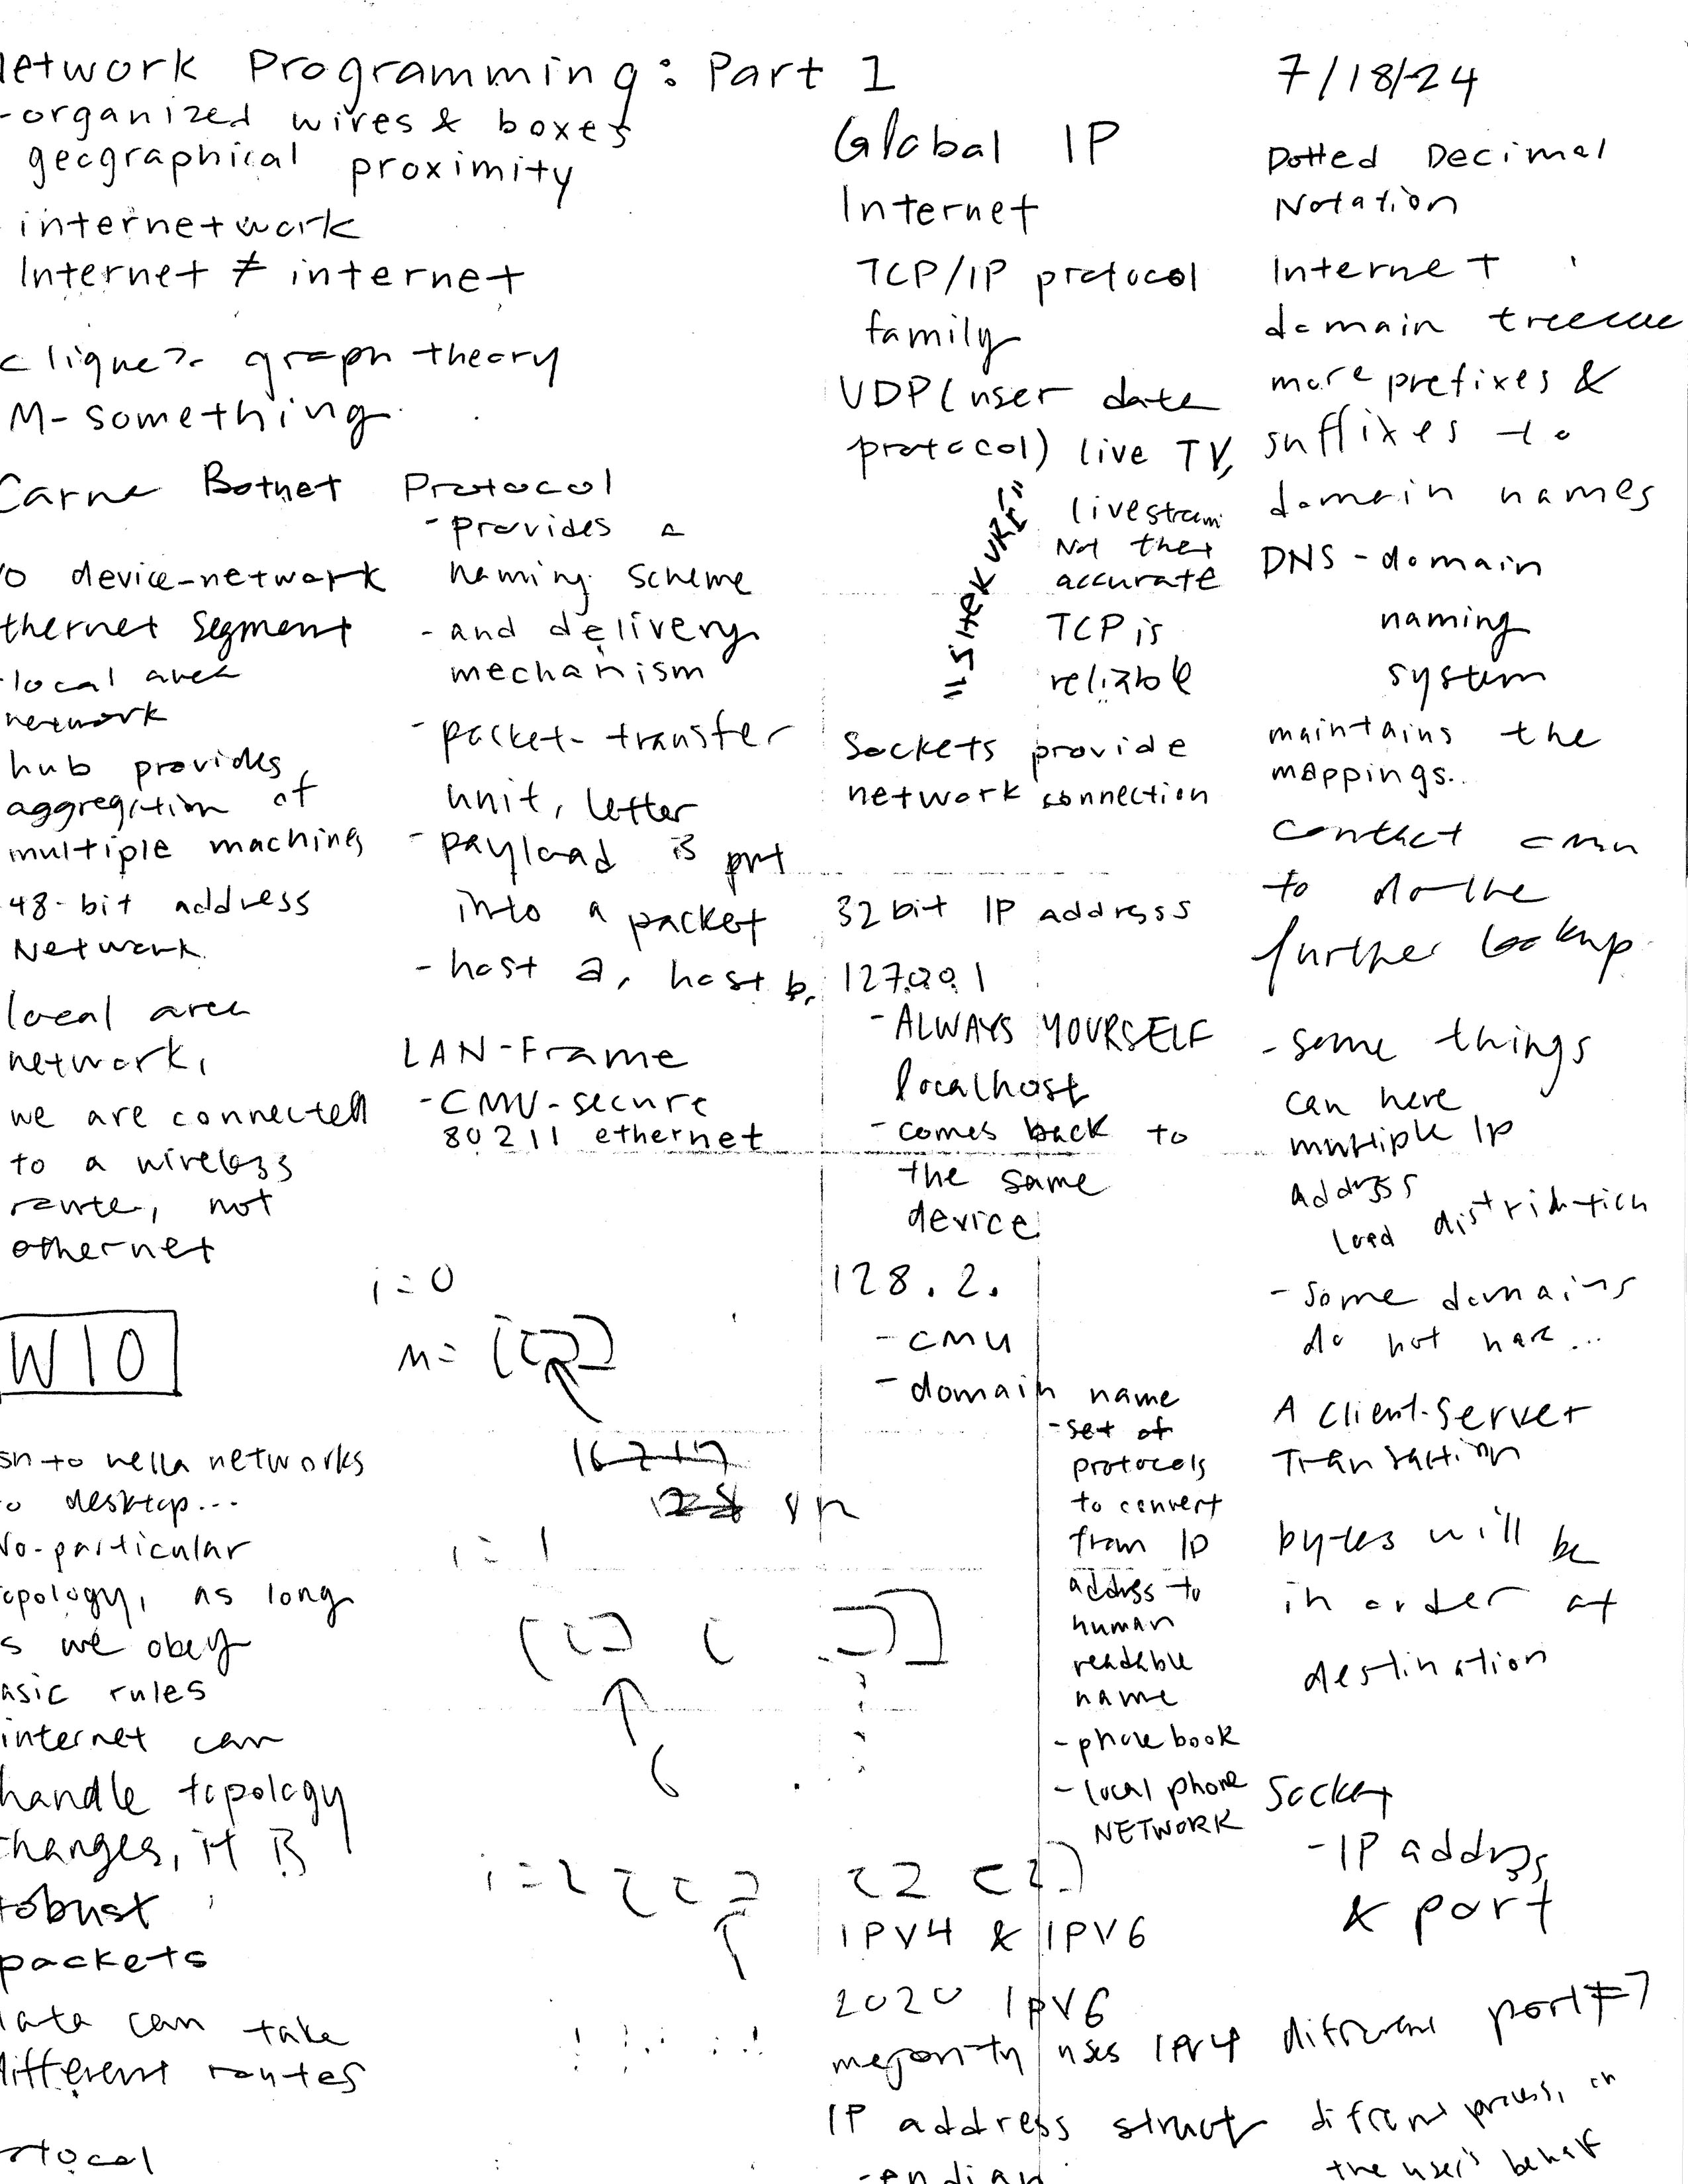 Network Programming: Part 1
7/18/24
-organized wires & boxes
geographical proximity
internetwork
Internet ≠ internet
clique? graph theory
M-something
Carna Botnet
device-network
thernet Segment
-local area
network
hub provides
aggregation of
multiple machines
48-bit address
Network
local area
network,
we are connected
to a wireless
route, not
ethernet
W10
networks
desktop...
No-particular
topology, as long
s we obey
asic rules
internet can
handle topology
changes, it is
robust
packets
data can take
different routes
otocol
Protocol
-provides a
naming scheme
-and delivery
mechanism
-packet-transfer
unit, letter
-payload is put
into a packet
-host a, host b,
LAN-Frame
-CMU-secure
80211 ethernet
i=0
m=
i=1
6
i=2
Global IP
Internet
TCP/IP protocol
family
UDP (user data
protocol) live TV,
livestream
Not that
accurate
TCP is
reliable
Sockets provide
network connection
32 bit IP addresss
127.0.0.1
-ALWAYS YOURSELF
localhost
-comes back to
the same
device
128.2.
-CMU
-domain name
-set of
protocols
to convert
from IP
address to
human
readable
name
-phonebook
-local phone
NETWORK
IPV4 & IPV6
2020 IpV6
majority uses IPV4
IP address struct
-endian
Dotted Decimal
Notation
Internet
domain tree
more prefixes &
suffixes to
domain names
DNS-domain
naming
system
maintains the
mappings..
contact cmu
to do the
further lookup
-some things
can have
multiple IP
address
load distribution
-some domains
do not have...
A Client-Server
Transaction
bytes will be
in order at
destination
Socket
-IP address
& port
different port#?
different process, on
the user's behalf